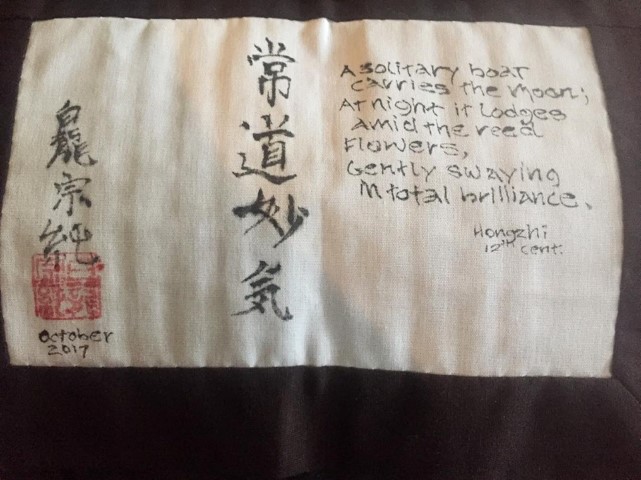 A solitary boat
carries the moon;
At night it lodges
amid the reed
flowers,
Gently swaying
In total brilliance.
Hongzhi
12th cent.
常道妙気
白龍宗純
October
2017